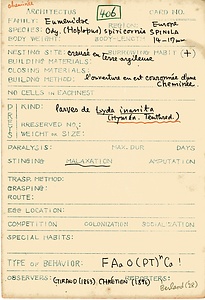 cheminée
ARCHITECTUS 406 CARD NO.
FAMILY: Eumenidae REGION: Europe
SPECIES: Ody. (Hoplopus) spiricornis SPINOLA
BODY WEIGHT: BODY-LENGTH: 14-17 mm
NESTING SITE: creusé en terre argileuse BURROWING HABIT (+)
BUILDING MATERIALS:
CLOSING MATERIALS: l'ouverture en est couronnée d'une
BUILDING METHOD: Cheminée
NO. CELLS IN EACH NEST
KIND: larves de Lyda inanita
(Hymén. Tenthred.)
PRESERVED NO.:
WEIGHT OR SIZE:
PARALYSIS: MAX. DUR. DAYS
STINGING MALAXATION AMPUTATION
TRASP. METHOD:
GRASPING:
ROUTE:
EGG LOCATION:
COMPETITION COLONIZATION SOCIALISATION
SPECIAL HABITS:
TYPE OF BEHAVIOR:
OBSERVERS: GIRAUD (1863) CHRÉTIEN (1896) REPORTERS:
Berland (28)